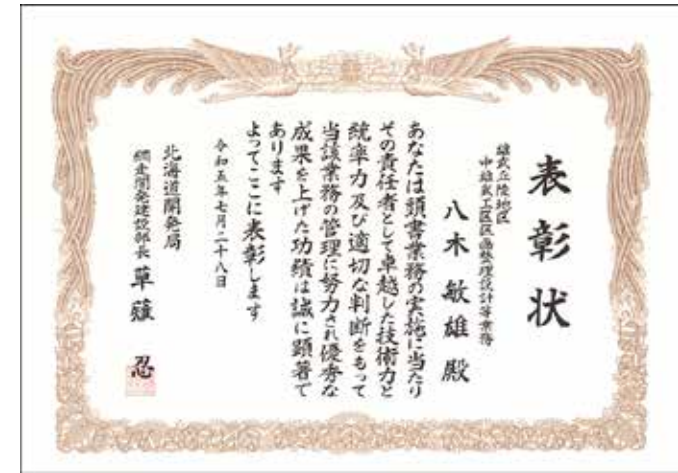 表彰状
雄武丘陵地区
中雄武工区区画整理設計等業務
八木敏雄殿
あなたは頭書業務の実施に当たり
その責任者として卓越した技術力と
統率力及び適切な判断をもって
当該業務の管理に努力され優秀な
成果を上げた功績は誠に顕著で
あります
よってここに表彰します
令和五年七月二十八日
北海道開発局
網走開発建設部長 草薙 忍